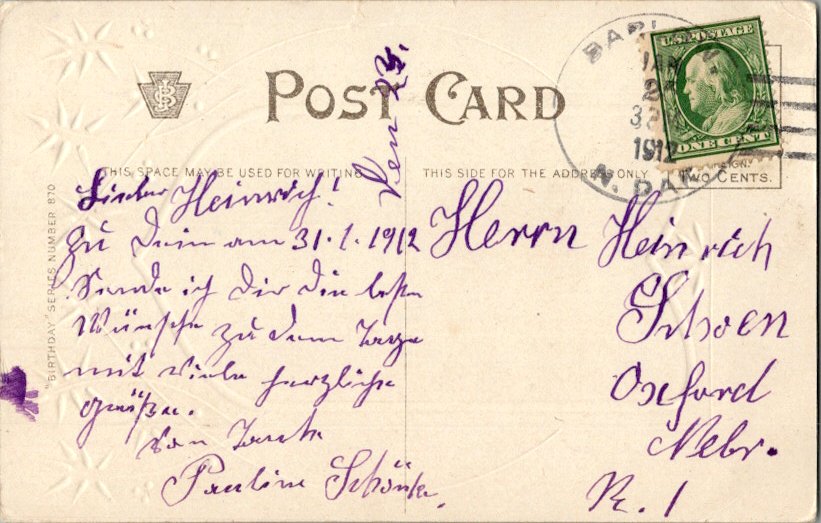 POST CARD
THIS SPACE MAY BE USED FOR WRITING
THIS SIDE FOR THE ADDRESS ONLY
"BIRTHDAY" SERIES NUMBER 870
U.S. POSTAGE
ONE CENT
TWO CENTS.
1912
N. DAK.
den 29.
Lieber Heinrich!
zu dein am 31.1.1912
Sende ich Dir die beste
Wünsche zu dem Tage
mit viele herzliche
Grüße.
von Tante
Pauline
Herrn Heinrich
Schoen
Oxford
Nebr.
R. 1